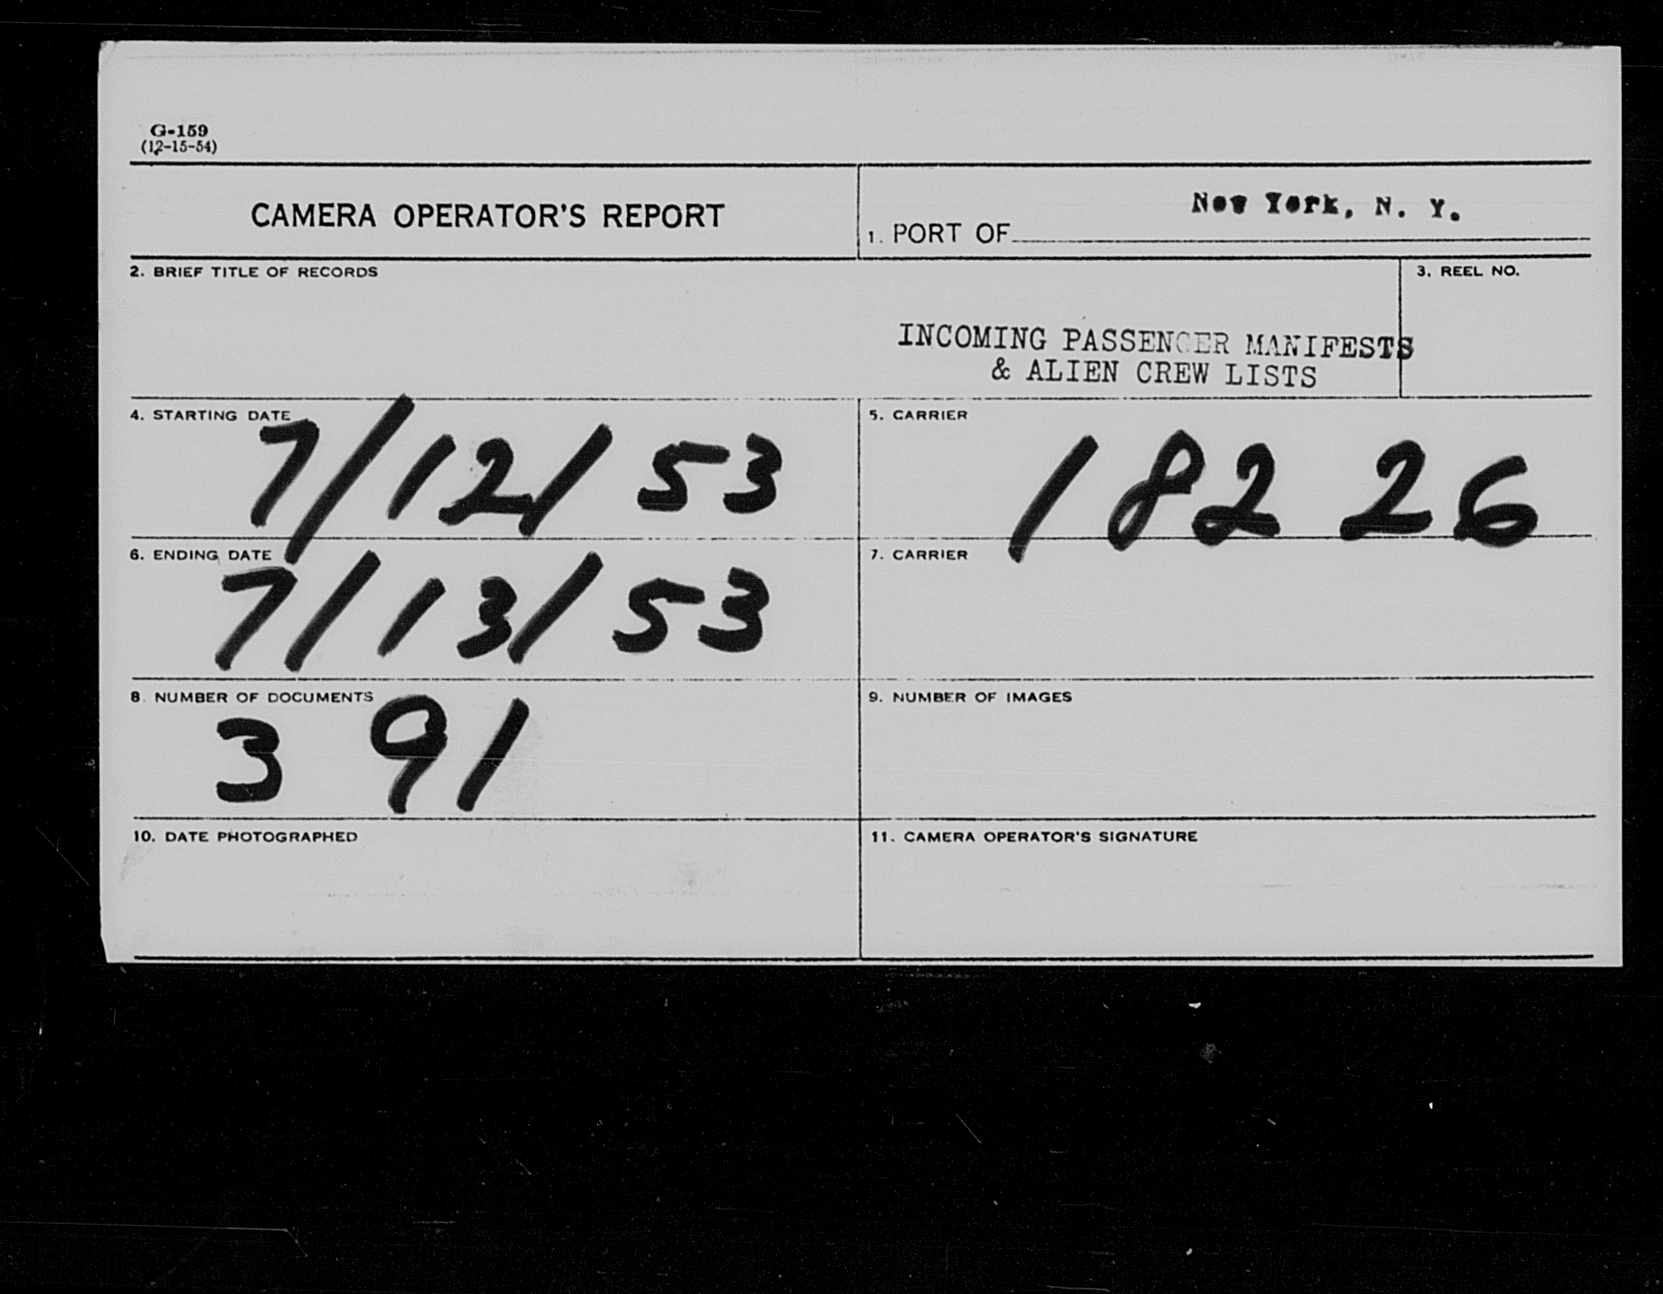 G-159
(12-15-54)
CAMERA OPERATOR'S REPORT
1. PORT OF New York, N. Y.
2. BRIEF TITLE OF RECORDS
INCOMING PASSENGER MANIFESTS
& ALIEN CREW LISTS
3. REEL NO.
4. STARTING DATE
7/12/53
5. CARRIER
18226
6. ENDING DATE
7/13/53
7. CARRIER
8. NUMBER OF DOCUMENTS
391
9. NUMBER OF IMAGES
10. DATE PHOTOGRAPHED
11. CAMERA OPERATOR'S SIGNATURE